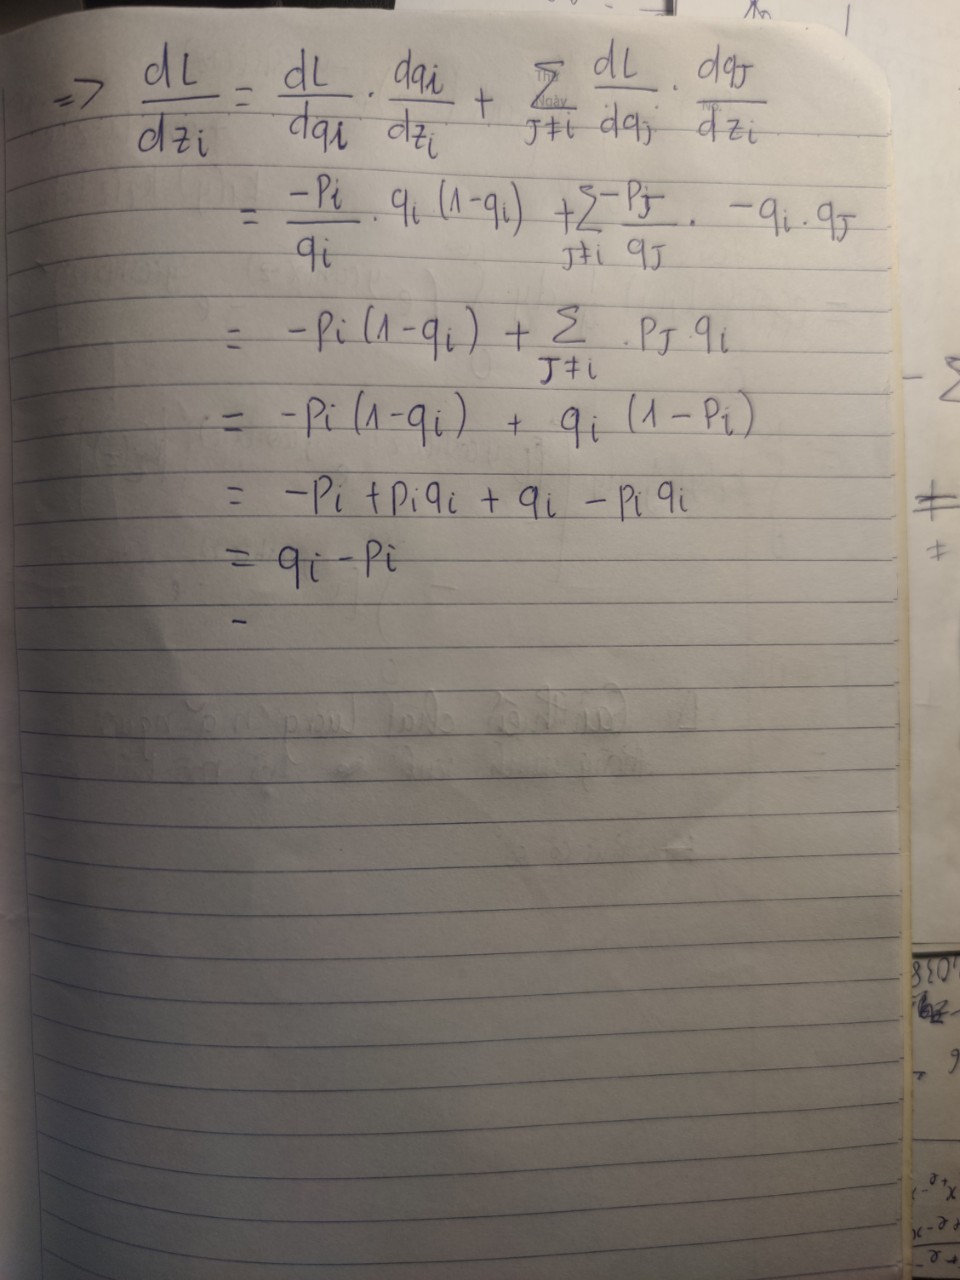 => dL/dzi = dL/dqi . dqi/dzi + Σ J≠i dL/dqj . dqJ/dzi
= -Pi/qi . qi (1-qi) + Σ J≠i -PJ/qJ . -qi . qJ
= -Pi (1-qi) + Σ J≠i . PJ . qi
= -Pi (1-qi) + qi (1-Pi)
= -Pi + Piqi + qi - Pi qi
= qi - Pi
-